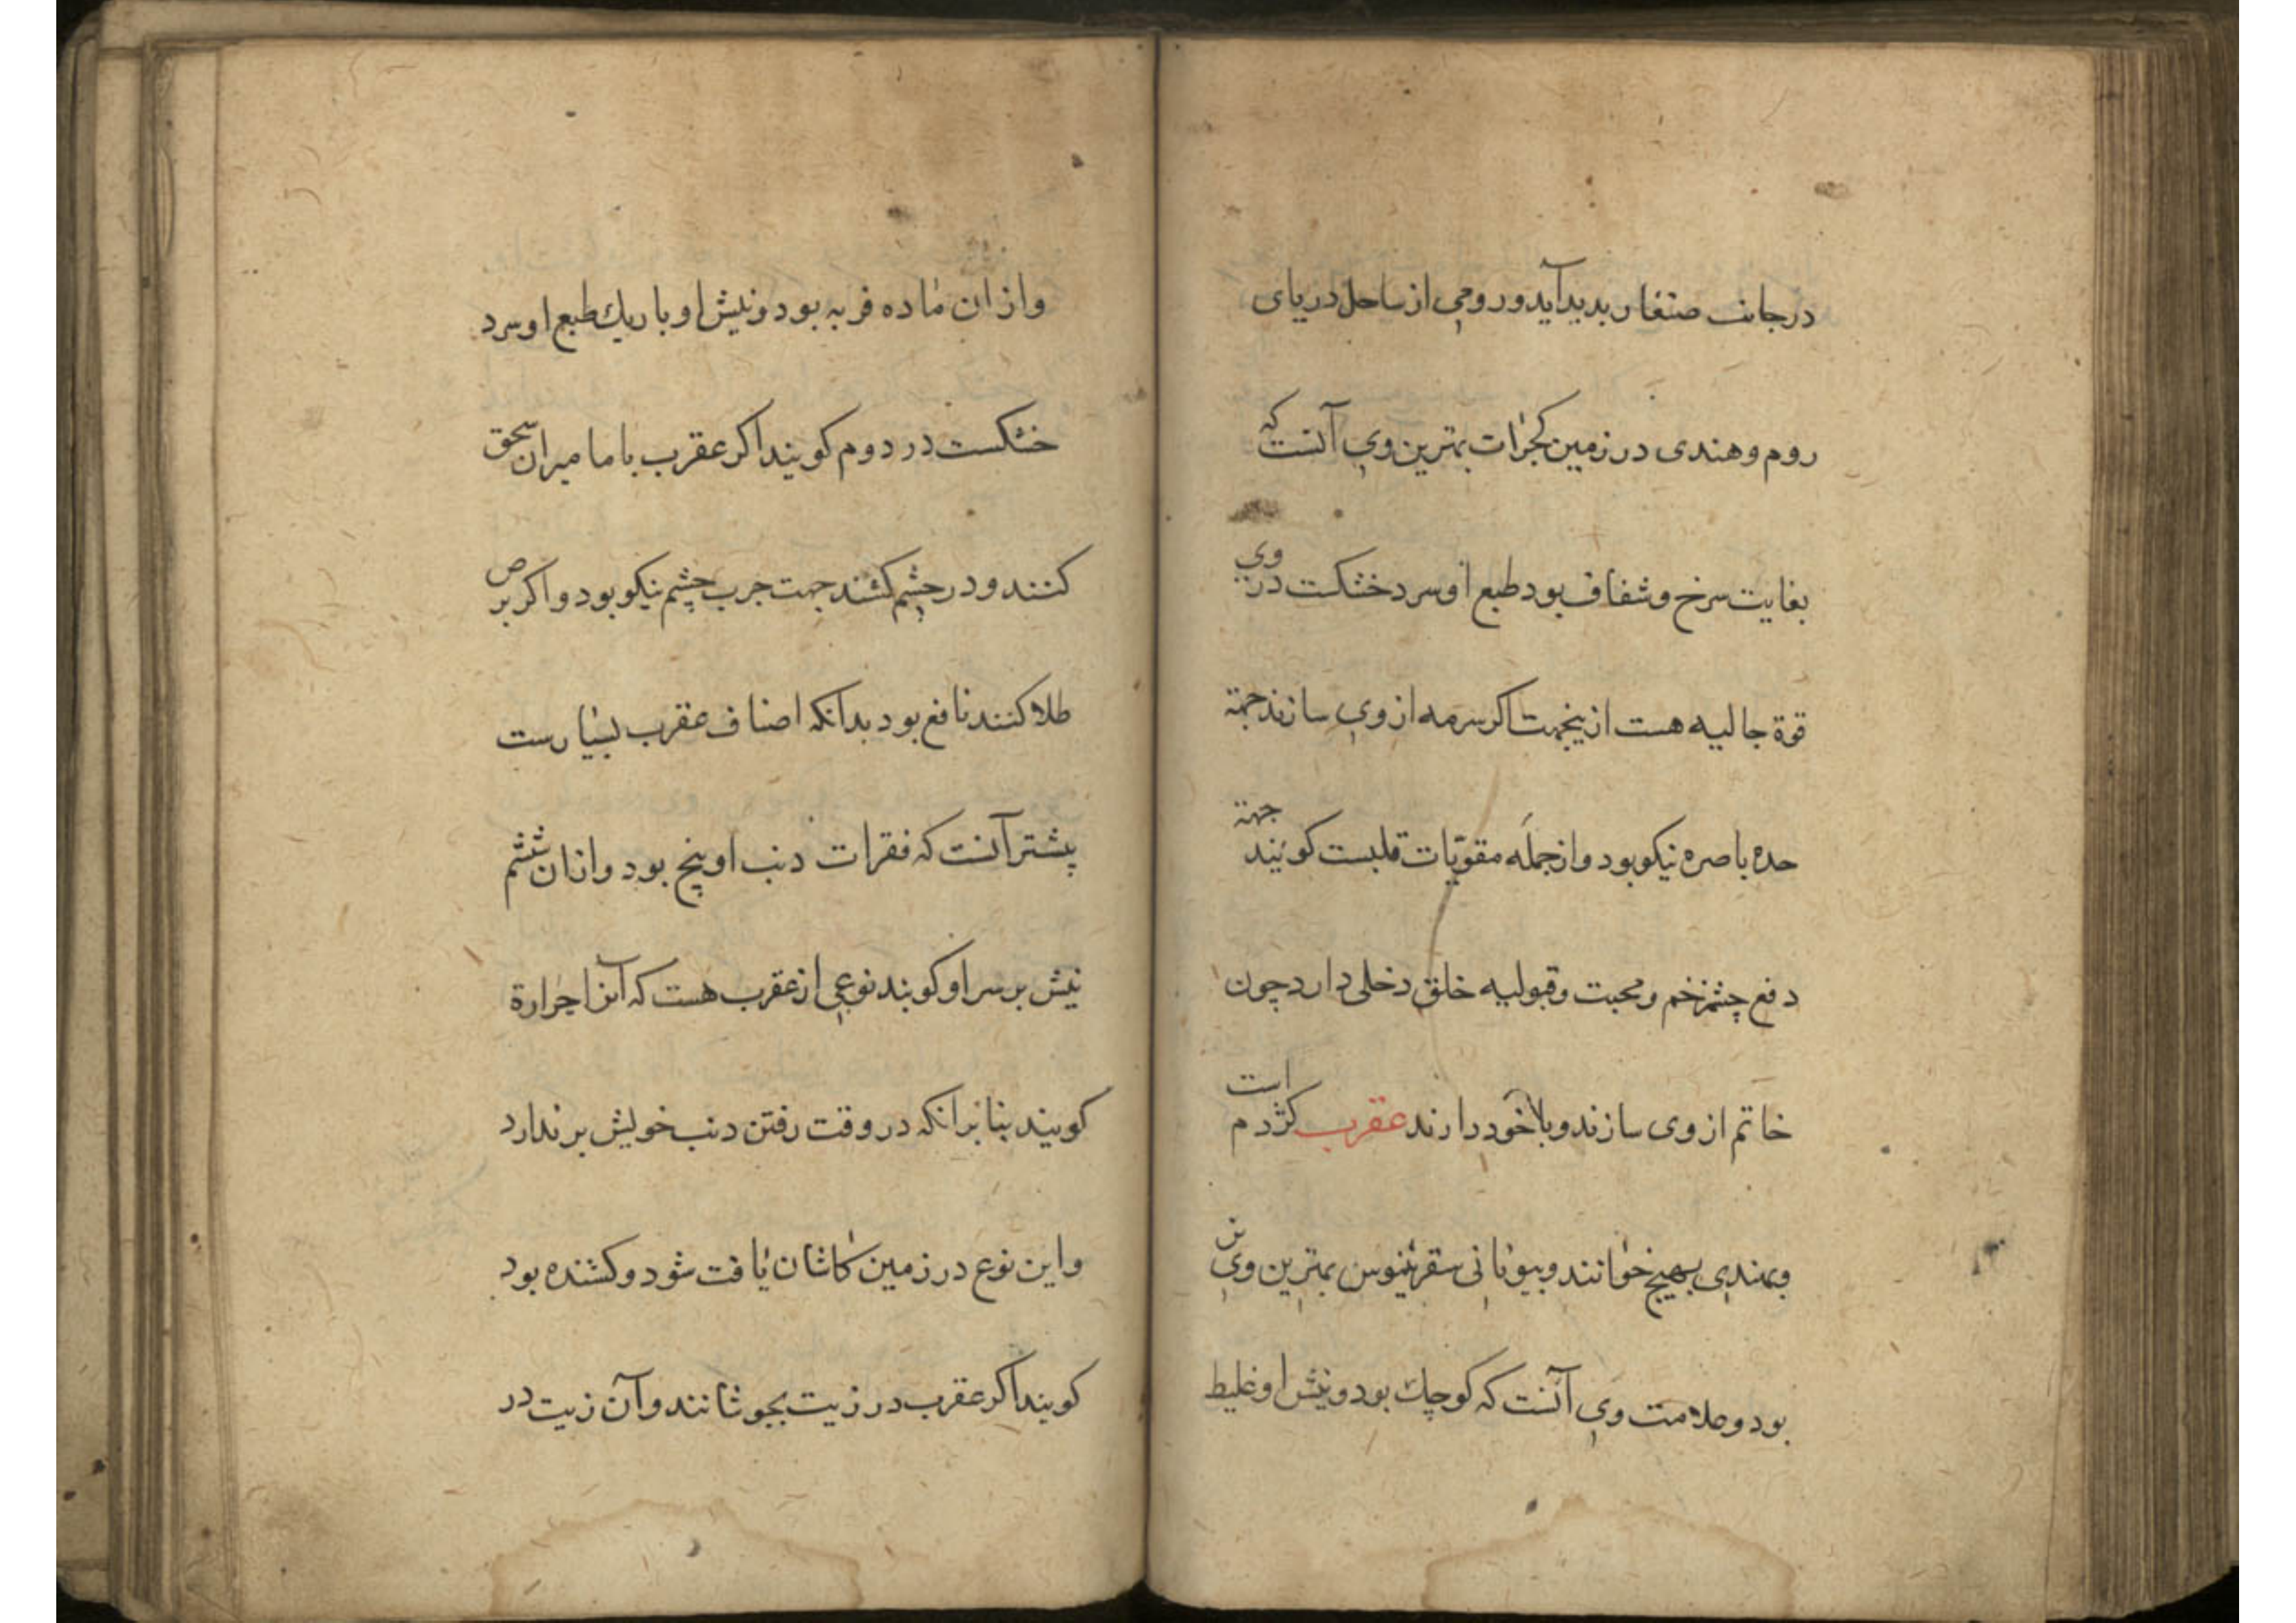 در جانب صنفار بدید آید و رومی از ساحل دریای
روم و هندی در زمین کجرات بهترین وی آنست که
بغایت سرخ و شفاف بود طبع او سرد خشکست در وی
قوة جالیه هست ازینجهت اکر سرمه از وی سازند جهة
حده باصره نیکو بود و از جمله مقویات قلبست کویند جهة
دفع چشم زخم و محبت و قبولیه خلق دخلی دارد چون
خاتم از وی سازند و باخود دارند عقرب کژدم است
وبهندی بهیج خوانند وبیونانی بهترین وی نر
بود و علامت وی آنست که کوچك بود و نیش او غلیظ
و از ان ماده فربه بود و نیش او باریك طبع او سرد
خشکست در دوم کویند اکر عقرب با مامیران سحق
کنند و در چشم کشند جهت جرب چشم نیکو بود و اکر بر برص
طلا کنند نافع بود بدانکه اصناف عقرب بسیارست
پیشتر آنست که فقرات دنب او پنج بود و ازان ششم
نیش بر سر او کویند نوعی از عقرب هست که آنرا جرارة
کویند بنابرانکه در وقت رفتن دنب خویش برندارد
و این نوع در زمین کاشان یافت شود و کشنده بود
کویند اکر عقرب در زیت بجوشانند و آن زیت در